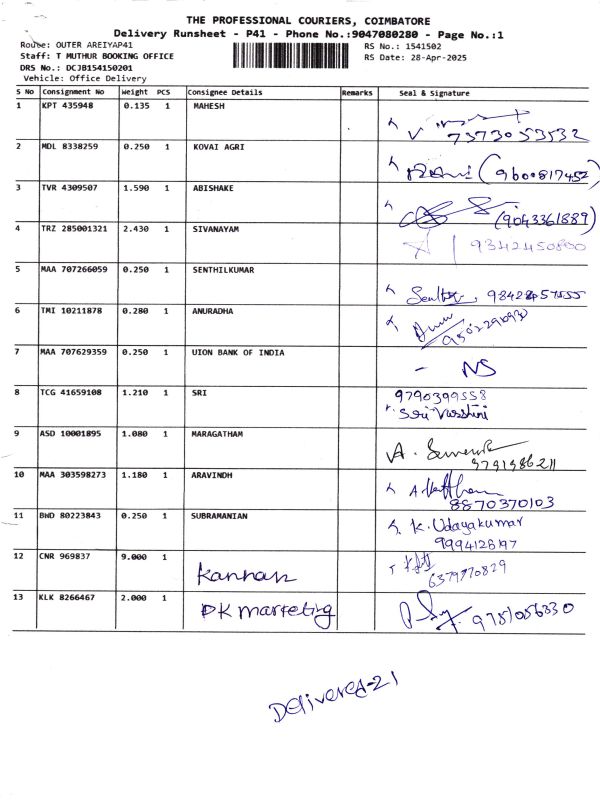 THE PROFESSIONAL COURIERS, COIMBATORE
Delivery Runsheet - P41 - Phone No.:9047080280 - Page No.:1
Route: OUTER AREIYAP41
RS No.: 1541502
Staff: T MUTHUR BOOKING OFFICE
RS Date: 28-Apr-2025
DRS No.: DCJB154150201
Vehicle: Office Delivery
S No Consignment No Weight PCS Consignee Details Remarks Seal & Signature
1 KPT 435948 0.135 1 MAHESH
7373053532
2 MDL 8338259 0.250 1 KOVAI AGRI
(9600817452)
3 TVR 4309507 1.590 1 ABISHAKE
(9043361889)
4 TRZ 285001321 2.430 1 SIVANAYAM
9342450800
5 MAA 707266059 0.250 1 SENTHILKUMAR
6 TMI 10211878 0.280 1 ANURADHA
7 MAA 707629359 0.250 1 UION BANK OF INDIA
- NS
8 TCG 41659108 1.210 1 SRI
9790399558
Sri Varshini
9 ASD 10001895 1.080 1 MARAGATHAM
A.
9791986211
10 MAA 303598273 1.180 1 ARAVINDH
8870370103
11 BWD 80223843 0.250 1 SUBRAMANIAN
K. Udayakumar
9994128197
12 CNR 969837 9.000 1 Kannan
6379770829
13 KLK 8266467 2.000 1 PK marketing
9751056330
Delivered-21